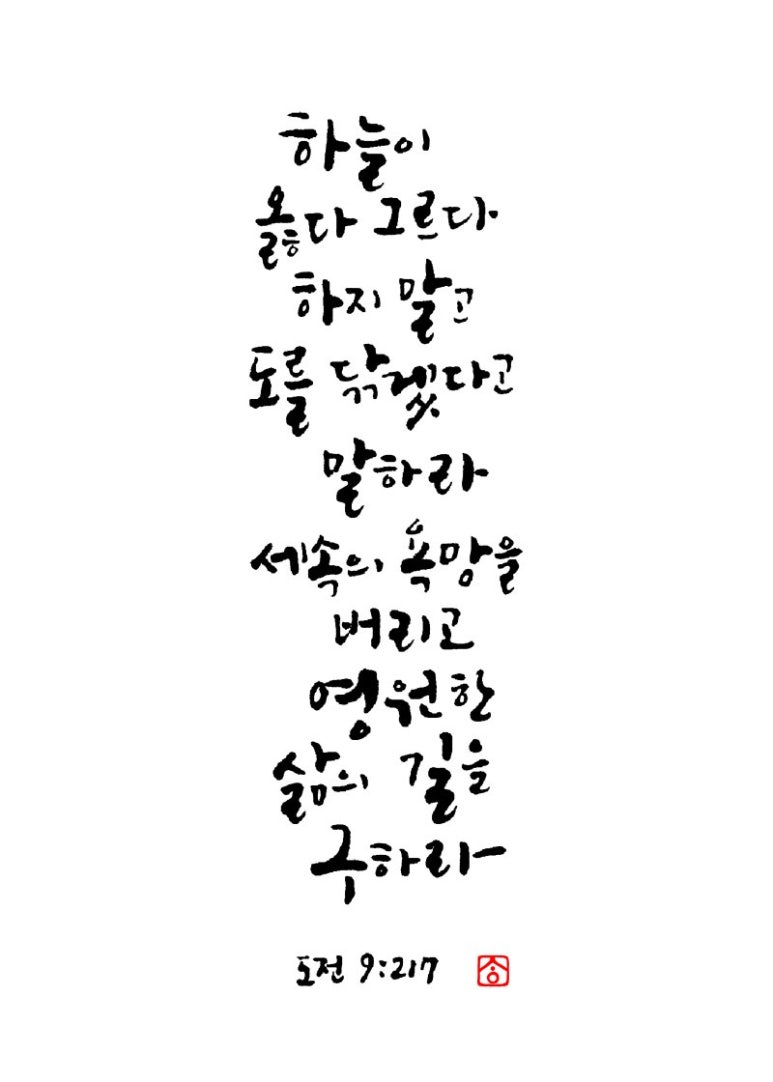 하늘이
옳다 그르다
하지 말고
도를 닦겠다고
말하라
세속의 욕망을
버리고
영원한
삶의 길을
구하라
도전 9:217